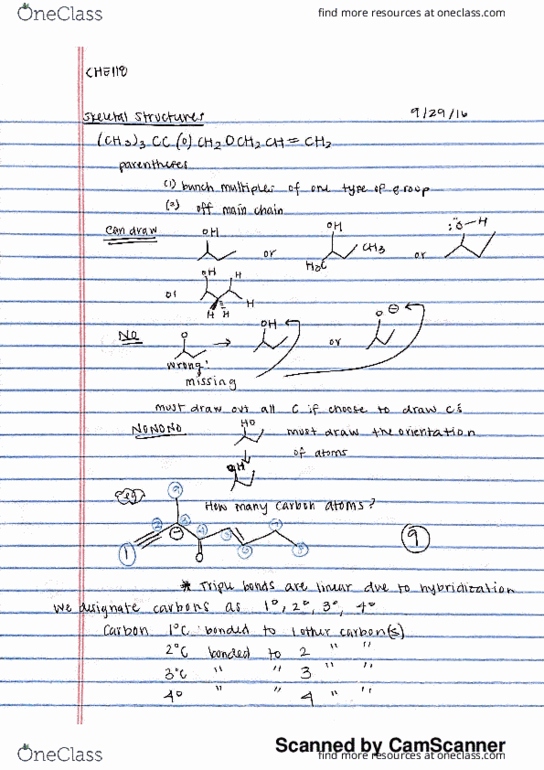 OneClass find more resources at oneclass.com
CHE118
Skeletal Structures 9/29/16
(CH3)3 CC (O) CH2 O CH2 CH = CH2
parentheses
(1) bunch multiples of one type of group
(2) off main chain
Can draw OH or OH CH3 H3C or :O-H
or OH H H H H
NO O → OH or O ⊖
wrong!
missing
must draw out all C if choose to draw C's
NONONO HO must draw the orientation
of atoms
OH
eg
How many carbon atoms?
1 2 3 4 5 6 7 8 9 ⊖ O 9
* Triple bonds are linear due to hybridization
we designate carbons as 1°, 2°, 3°, 4°
Carbon 1°C bonded to 1 other carbon(s)
2°C bonded to 2 " "
3°C " " 3 " "
4° " " 4 " "
Scanned by CamScanner
OneClass find more resources at oneclass.com